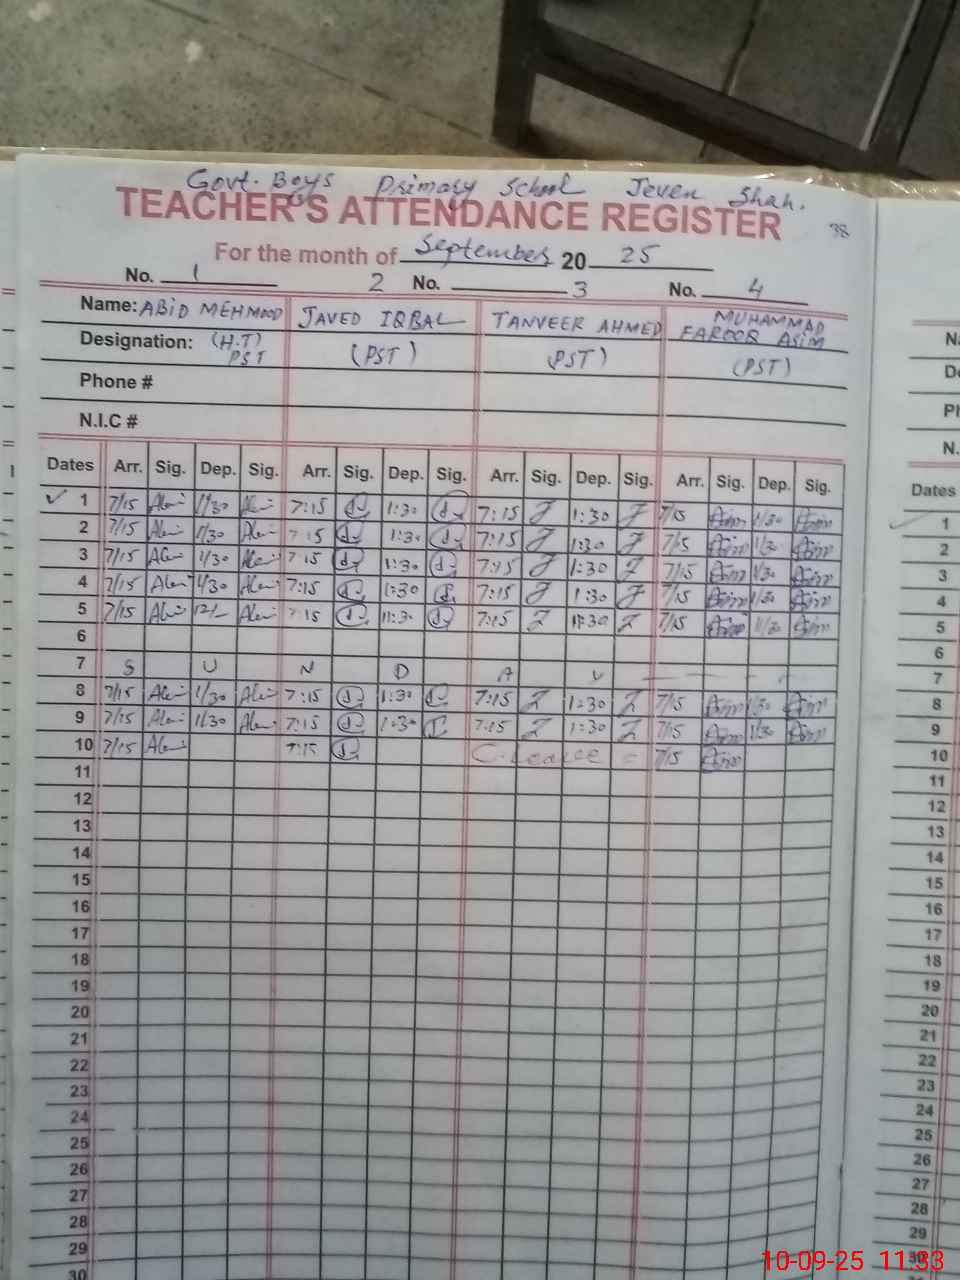 Govt. Boys Primary School Jeven Shah.
TEACHER'S ATTENDANCE REGISTER
38
For the month of September 2025
No. 1 2 No. 3 No. 4
Name: ABID MEHMOOD JAVED IQBAL TANVEER AHMED MUHAMMAD FAROOQ ASIM
Designation: (H.T) PST (PST) (PST) (PST)
Phone #
N.I.C #
Dates Arr. Sig. Dep. Sig. Arr. Sig. Dep. Sig. Arr. Sig. Dep. Sig. Arr. Sig. Dep. Sig.
✓ 1 7/15 1/30 7:15 1:30 7:15 1:30 7/15 1/30
2 7/15 1/30 7:15 1:30 7:15 1:30 7/15 1/30
3 7/15 1/30 7:15 1:30 7:15 1:30 7/15 1/30
4 7/15 1/30 7:15 1:30 7:15 1:30 7/15 1/30
5 7/15 7:15 7:15 7/15
6
7 S U N D A Y
8 7/15 1/30 7:15 1:30 7:15 1:30 7/15 1:30
9 7/15 1/30 7:15 1:30 7:15 1:30 7/15 1/30
10 7/15 7:15 C. leave 7/15
11
12
13
14
15
16
17
18
19
20
21
22
23
24
25
26
27
28
29
30
Dates
1
2
3
4
5
6
7
8
9
10
11
12
13
14
15
16
17
18
19
20
21
22
23
24
25
26
27
28
29
30
10-09-25 11:33